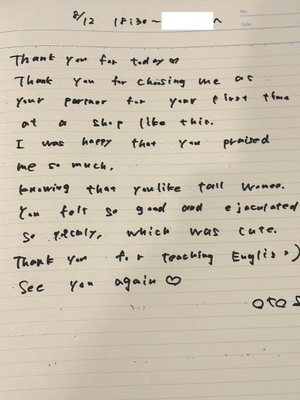 8/12 18:30~
Thank you for today♡
Thank you for chosing me as
your partner for your first time
at a shop like this.
I was happy that you praised
me so much.
knowing that you like tall women.
You felt so good and ejaculated
so qickly, which was cute.
Thank you for teaching English :)
See you again ♡